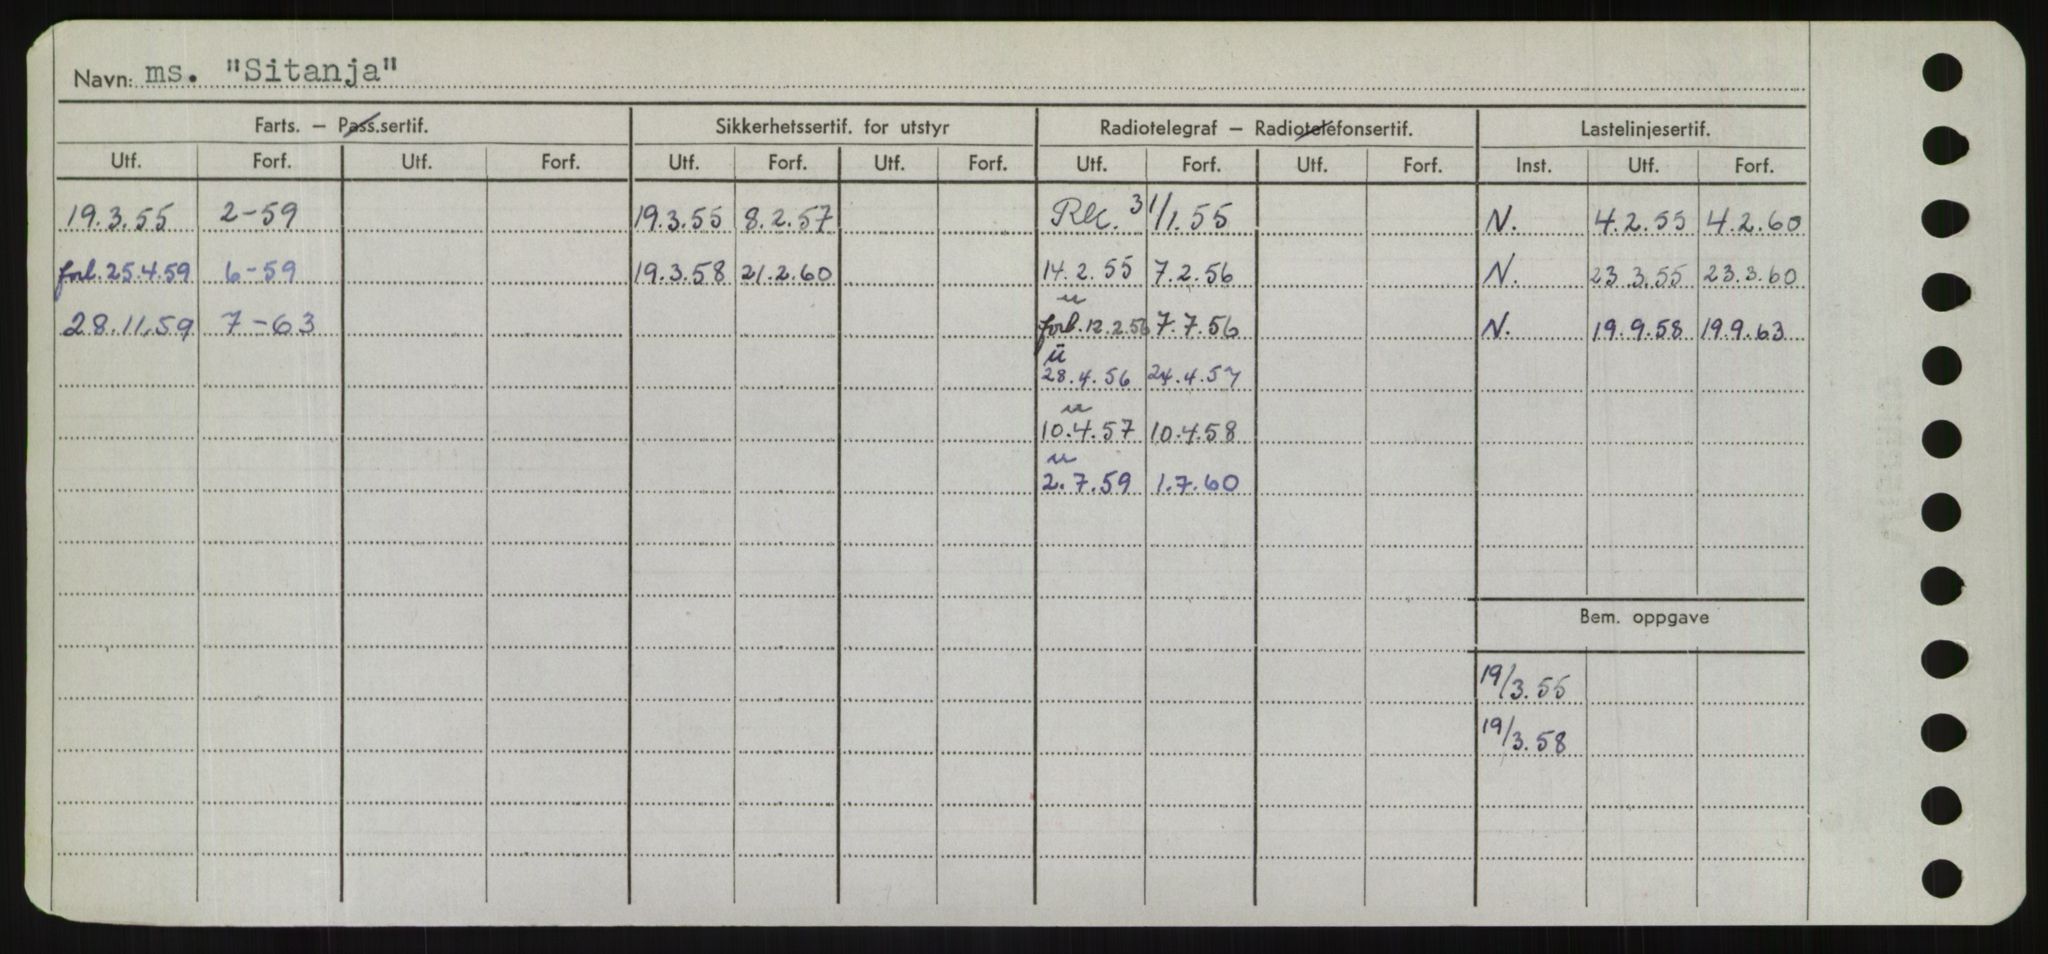 Navn: ms. "Sitanja"
Farts. – Pass.sertif. Sikkerhetssertif. for utstyr Radiotelegraf – Radiotelefonsertif. Lastelinjesertif.
Utf. Forf. Utf. Forf. Utf. Forf. Utf. Forf. Utf. Forf. Utf. Forf. Inst. Utf. Forf.
19.3.55 2-59 19.3.55 8.2.57 31/1.55 N. 4.2.55 4.2.60
forl. 25.4.59 6-59 19.3.58 21.2.60 14.2.55 7.2.56 N. 23.3.55 23.3.60
u
28.11.59 7-63 forl. 12.2.56 7.7.56 N. 19.9.58 19.9.63
u
28.4.56 24.4.57
u
10.4.57 10.4.58
u
2.7.59 1.7.60
Bem. oppgave
19/3.55
19/3.58